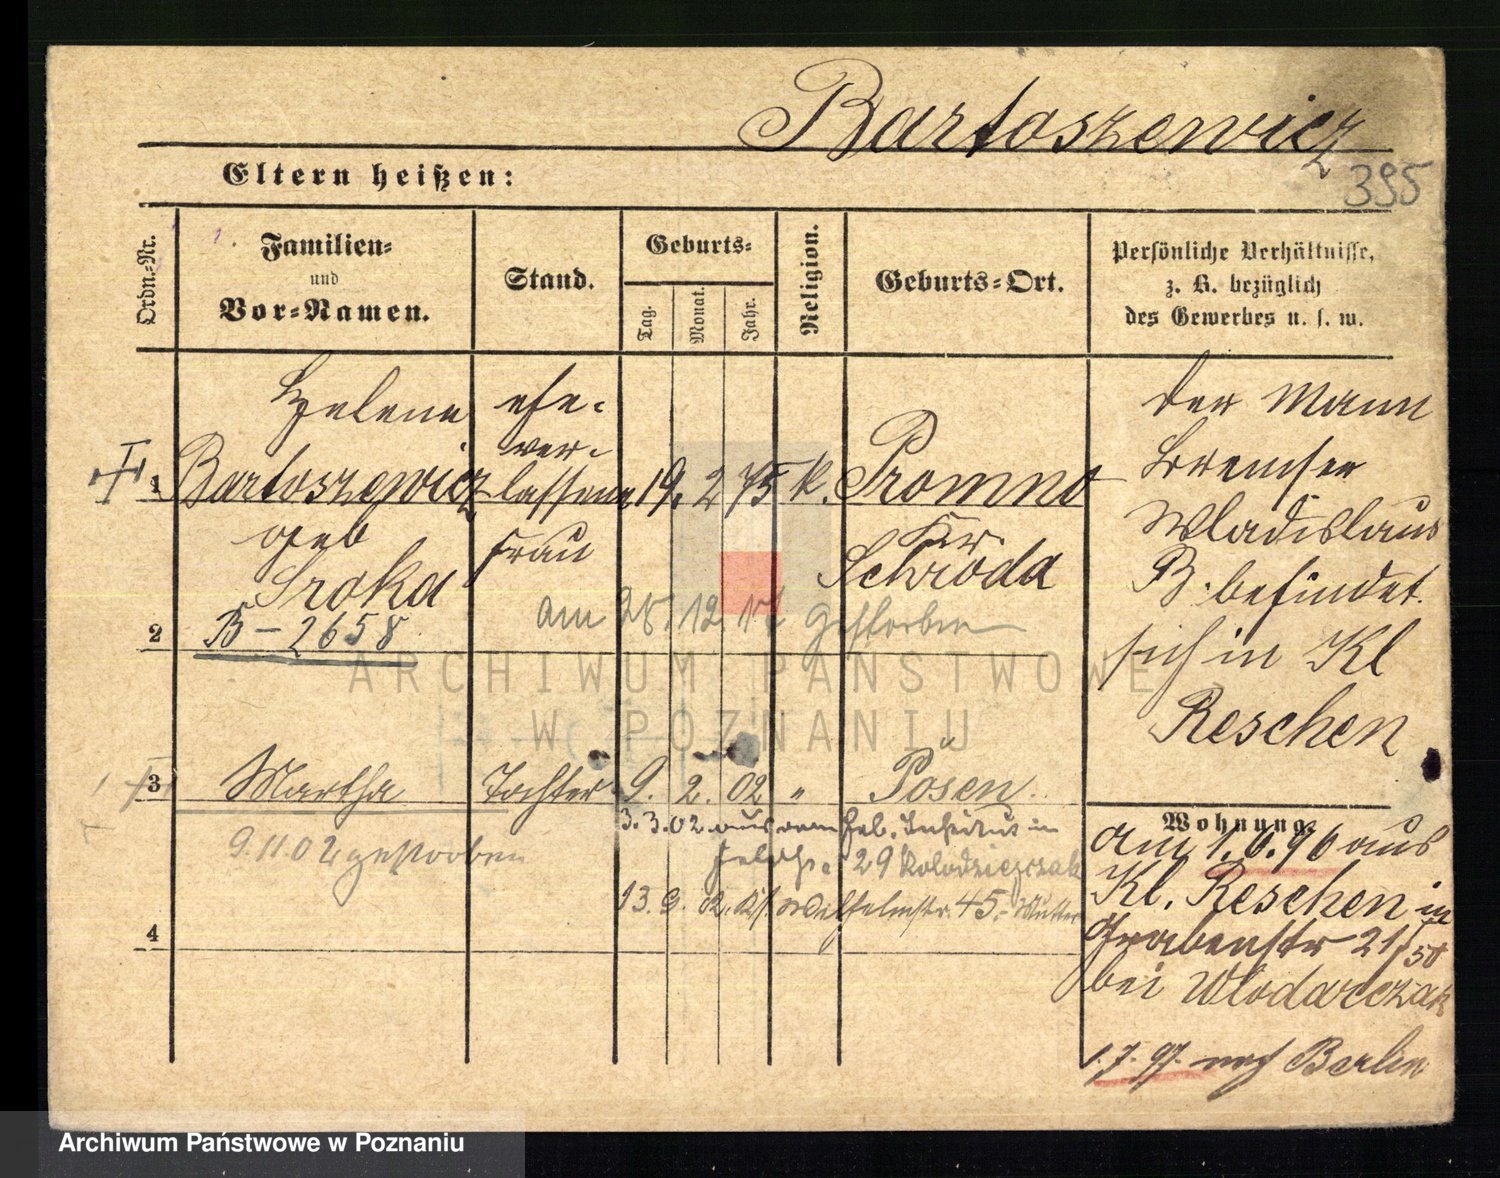 Bartoszewicz
395
Eltern heißen:
Ordn.-Nr.
Familien-
und
Vor-Namen.
Stand.
Geburts-
Tag.
Monat.
Jahr.
Religion.
Geburts-Ort.
Persönliche Verhältnisse,
z. B. bezüglich
des Gewerbes u. s. w.
1
Helene
Bartoszewicz
geb
Sroka
ehe-
ver-
lassene
Frau
19. 2 75 k.
Promno
Kr.
Schroda
der Mann
Bremser
Wladislaus
B. befindet
sich in Kl
Reschen
2
B-2658
am 28. 12 gestorben
3
Martha Tochter 9. 2. 02 " Posen.
3.3.02 aus in
29 Kolodziejczak
9.11.02 gestorben
13. 9. 02. Wilhelmstr. 45.- Mutter
4
Wohnung.
am 1.6.96 aus
Kl. Reschen in
Grabenstr 21/50
bei Wlodarczak
1.7.97. nach Berlin
ARCHIWUM PAŃSTWOWE
W POZNANIU
Archiwum Państwowe w Poznaniu